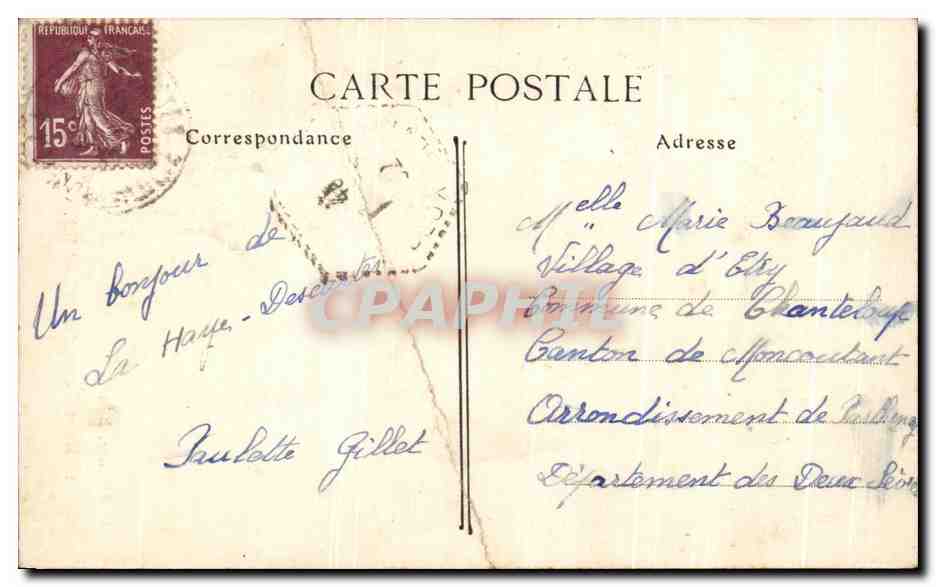 RÉPUBLIQUE FRANÇAISE
15c
POSTES
CARTE POSTALE
Correspondance
Adresse
Un bonjour de
La Haye-Descartes
Paulette Gillet
Melle Marie Beaujaud
Village d'Etry
Commune de Chanteloup
Canton de Moncoutant
Arrondissement de
Département des Deux Sèvres
CPAPHIL